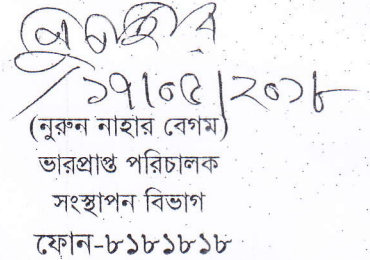 ১৭/০৫/২০১৮
(নুরুন নাহার বেগম)
ভারপ্রাপ্ত পরিচালক
সংস্থাপন বিভাগ
ফোন-৮১৮১৮১৮